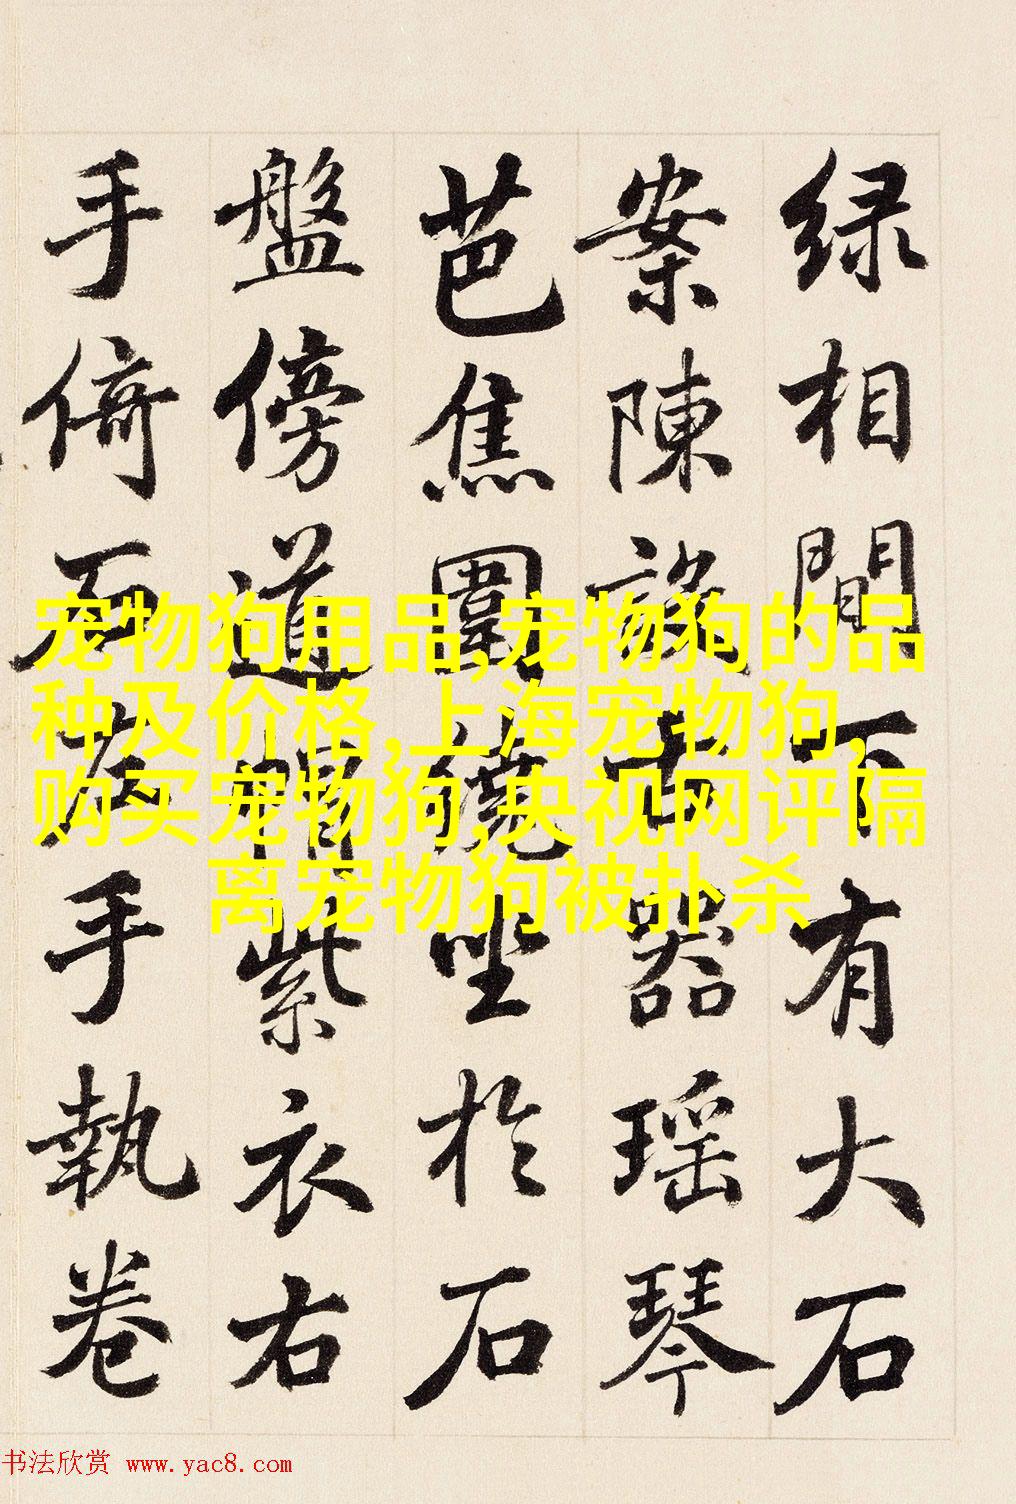 绿相間下有大石
案陳設古器瑶琴
芭焦圍繞坐於石
盤傍道帽紫衣右
手倚石左手執卷
宠物狗用品,宠物狗的品
种及价格,上海宠物狗,
购买宠物狗,央视网评隔
离宠物狗被扑杀
书法欣赏 www.yac8.com